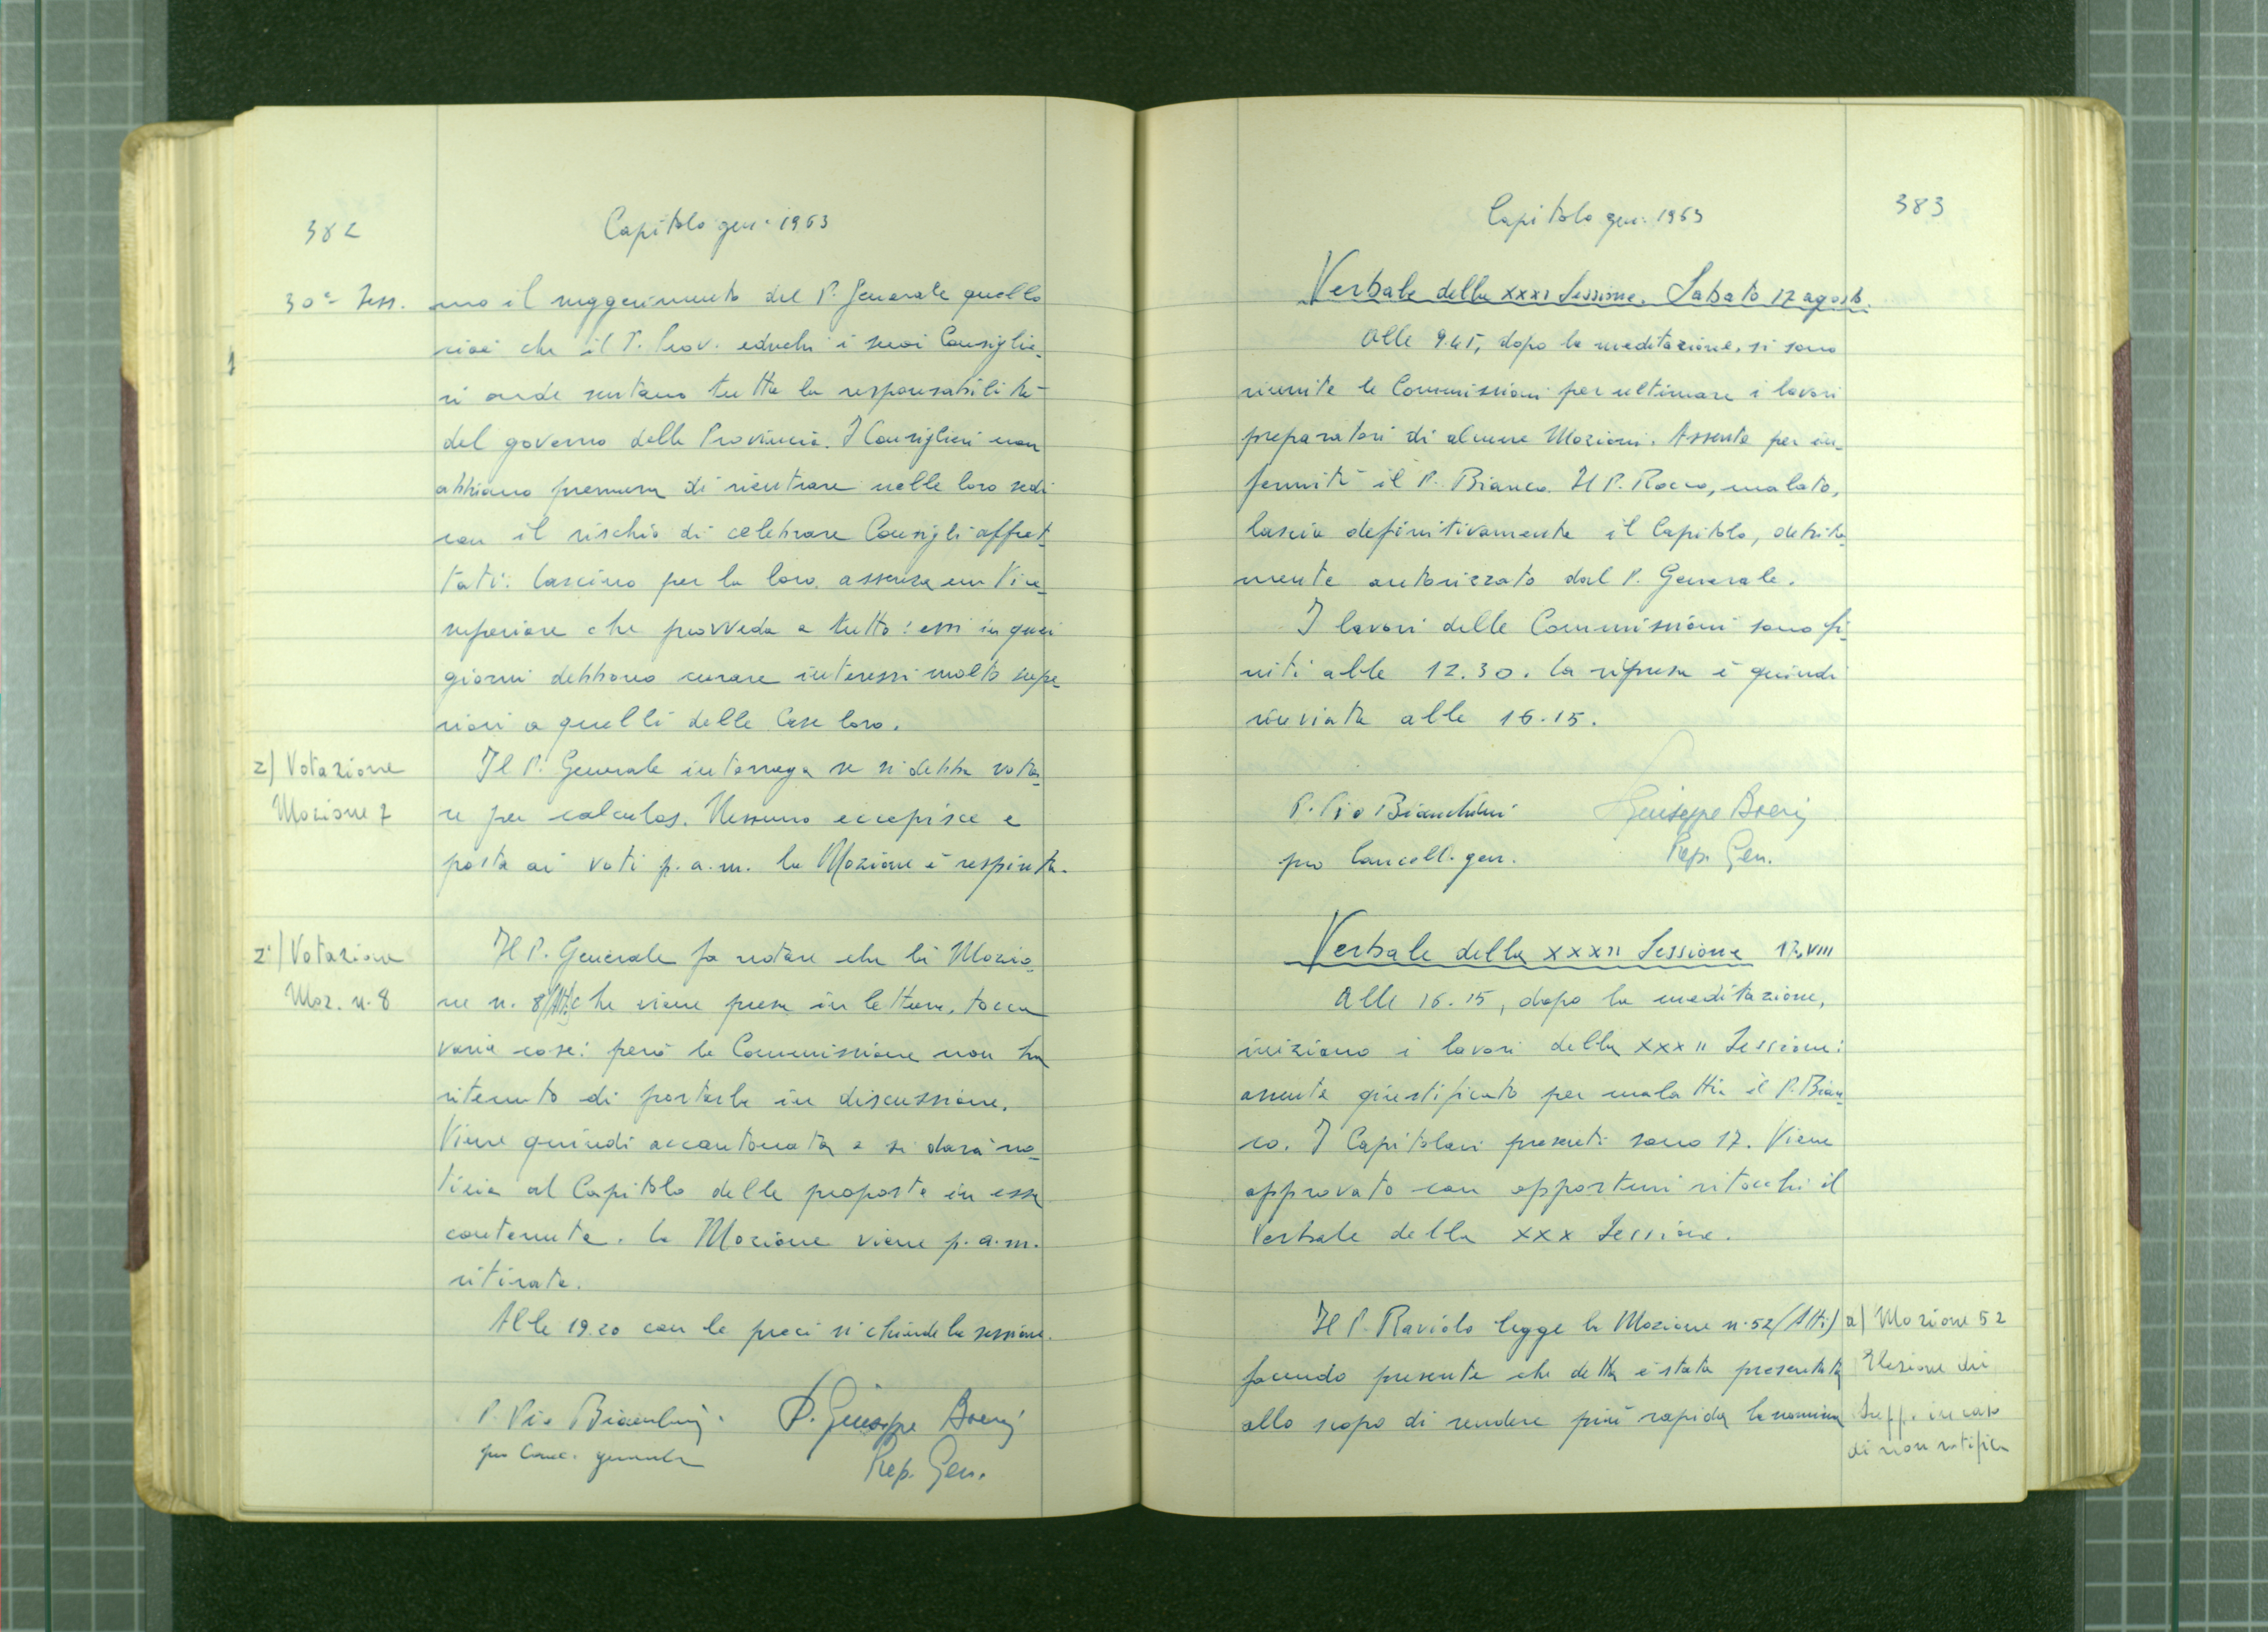 382
Capitolo gen. 1963
30ª Sess.
mo il suggerimento del P. Generale quello
cioè che il P. Prov. educhi i suoi Consiglie-
ri onde sentano tutta la responsabilità
del governo della Provincia. I Consiglieri non
abbiano premura di rientrare nelle loro sedi
con il rischio di celebrare Consigli affret-
tati: lascino per la loro assenza un Vice
superiore che provveda a tutto: essi in quei
giorni debbono curare interessi molto supe-
riori a quelli delle Case loro.
z) Votazione
Mozione 7
Il P. Generale interroga se si debba vota-
re per calculos. Nessuno eccepisce e
posta ai voti p.a.m. la Mozione è respinta.
z') Votazione
Moz. n. 8
Il P. Generale fa notare che la Mozio-
ne n. 8 (Atti) che viene presa in lettura, tocca
varie cose: però la Commissione non ha
ritenuto di portarla in discussione.
Viene quindi accantonata e si darà no-
tizia al Capitolo delle proposte in essa
contenute. La Mozione viene p.a.m.
ritirata.
Alle 19.20 con le preci si chiude la sessione.
P. Pio Bianchini
pro Canc. generale
P. Giuseppe Boeri
Prep. Gen.
Capitolo gen. 1963
383
Verbale della XXXI Sessione. Sabato 17 agosto.
Alle 9.45, dopo la meditazione, si sono
riunite le Commissioni per ultimare i lavori
preparatori di alcune Mozioni. Assente per in-
fermità il P. Bianco. Il P. Rocco, malato,
lascia definitivamente il Capitolo, debita-
mente autorizzato dal P. Generale.
I lavori delle Commissioni sono fi-
niti alle 12.30. La ripresa è quindi
rinviata alle 16.15.
P. Pio Bianchini
pro Cancell. gen.
Giuseppe Boeri
Prep. Gen.
Verbale della XXXII Sessione 17.VIII
Alle 16.15, dopo la meditazione,
iniziano i lavori della XXXII Sessione:
assente giustificato per malattia il P. Bian-
co. I Capitolari presenti sono 17. Viene
approvato con opportuni ritocchi il
Verbale della XXX Sessione.
Il P. Raviolo legge la Mozione n. 52 (Atti)
facendo presente che detta è stata presentata
allo scopo di rendere più rapida la nomina
a) Mozione 52
Elezione dei
Supp. in caso
di non ratifica